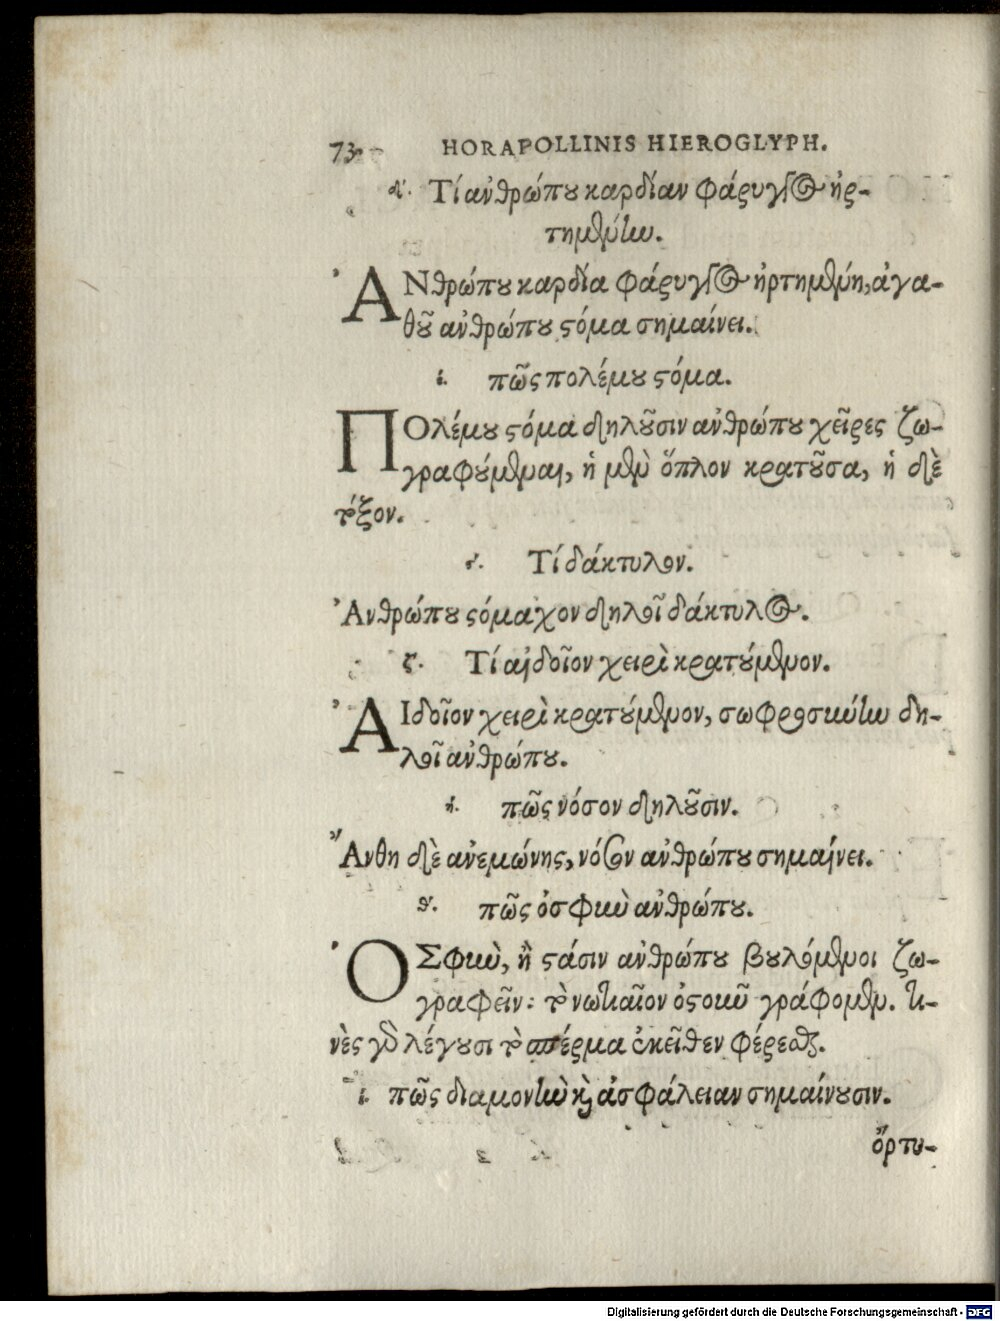 73 HORAPOLLINIS HIEROGLYPH.
δ'. Τί ἀνθρώπου καρδίαν φάρυγγος ἠρ-
τημένην.
ἈΝθρώπου καρδία φάρυγγος ἠρτημένη, ἀγα-
θοῦ ἀνθρώπου στόμα σημαίνει.
ε. πῶς πολέμου στόμα.
ΠΟλέμου στόμα δηλοῦσιν ἀνθρώπου χεῖρες ζω-
γραφούμεναι, ἡ μὲν ὅπλον κρατοῦσα, ἡ δὲ
τόξον.
ϛ'. Τί δάκτυλον.
Ἀνθρώπου στόμαχον δηλοῖ δάκτυλος.
ζ. Τί αἰδοῖον χειρὶ κρατούμενον.
ἈΙδοῖον χειρὶ κρατούμενον, σωφροσύνην δη-
λοῖ ἀνθρώπου.
η. πῶς νόσον δηλοῦσιν.
Ἄνθη δὲ ἀνεμώνης, νόσον ἀνθρώπου σημαίνει.
θ'. πῶς ὀσφὺν ἀνθρώπου.
ὈΣφὺν, ἢ στάσιν ἀνθρώπου βουλόμενοι ζω-
γραφεῖν: τὸ νωτιαῖον ὀστοῦν γράφομεν. τι-
νὲς γὰρ λέγουσι τὸ σπέρμα ἐκεῖθεν φέρεσθαι.
ι. πῶς διαμονὴν καὶ ἀσφάλειαν σημαίνουσιν.
ὄρτυ-
Digitalisierung gefördert durch die Deutsche Forschungsgemeinschaft - DFG